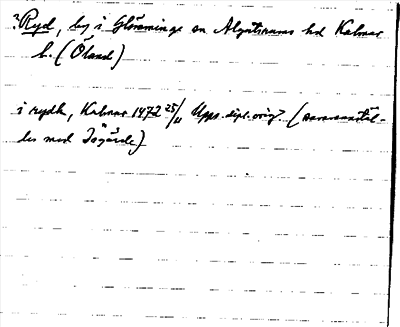 ?Ryd, by i Glömminge sn Algutsrums hd Kalmar
l. (Öland)
i rydh, Kalmar 1472 25/11 Upps. dipl. orig (sammanstäl-
des med Isgärde)